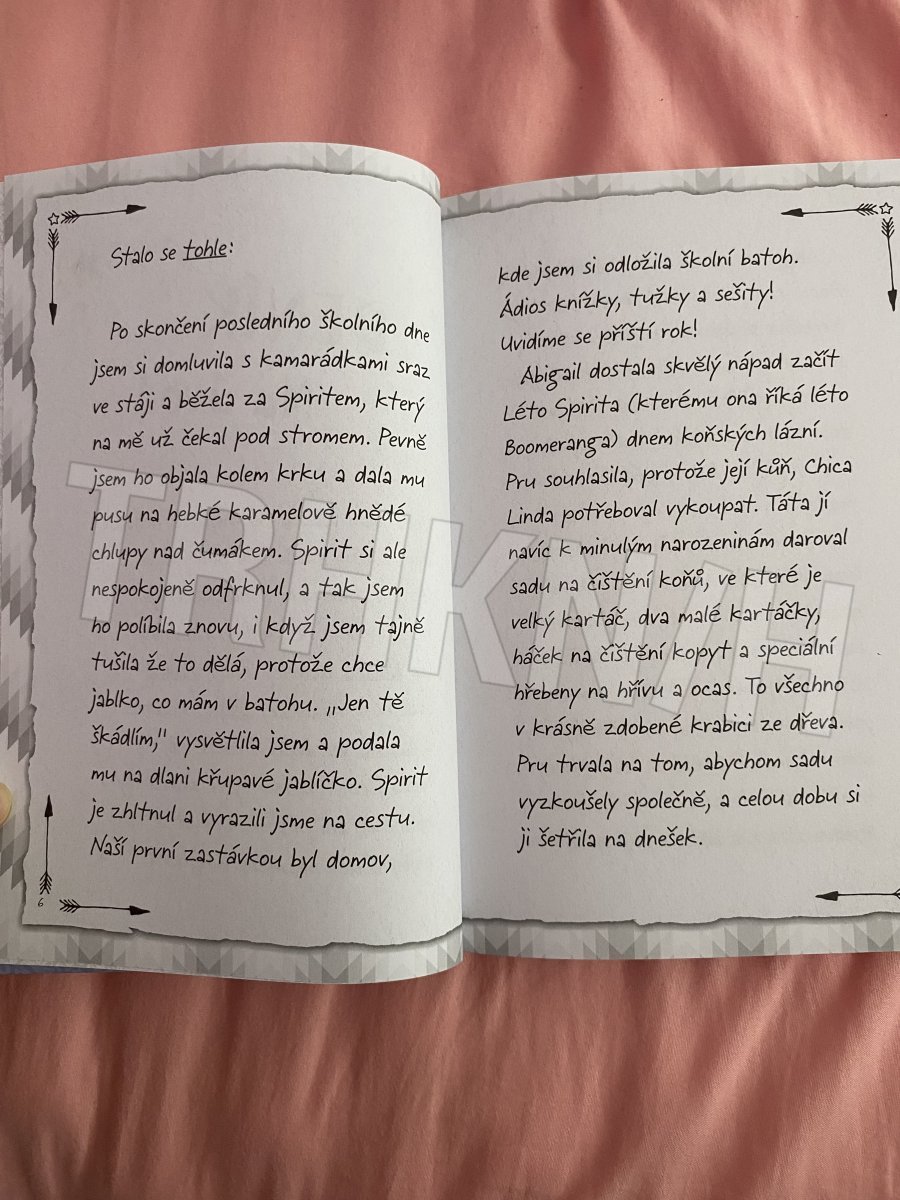 Stalo se tohle:
Po skončení posledního školního dne
jsem si domluvila s kamarádkami sraz
ve stáji a běžela za Spiritem, který
na mě už čekal pod stromem. Pevně
jsem ho objala kolem krku a dala mu
pusu na hebké karamelově hnědé
chlupy nad čumákem. Spirit si ale
nespokojeně odfrknul, a tak jsem
ho políbila znovu, i když jsem tajně
tušila že to dělá, protože chce
jablko, co mám v batohu. „Jen tě
škádlím," vysvětlila jsem a podala
mu na dlani křupavé jablíčko. Spirit
je zhltnul a vyrazili jsme na cestu.
Naší první zastávkou byl domov,
6
kde jsem si odložila školní batoh.
Ádios knížky, tužky a sešity!
Uvidíme se příští rok!
Abigail dostala skvělý nápad začít
Léto Spirita (kterému ona říká léto
Boomeranga) dnem koňských lázní.
Pru souhlasila, protože její kůň, Chica
Linda potřeboval vykoupat. Táta jí
navíc k minulým narozeninám daroval
sadu na čištění koňů, ve které je
velký kartáč, dva malé kartáčky,
háček na čištění kopyt a speciální
hřebeny na hřívu a ocas. To všechno
v krásně zdobené krabici ze dřeva.
Pru trvala na tom, abychom sadu
vyzkoušely společně, a celou dobu si
ji šetřila na dnešek.